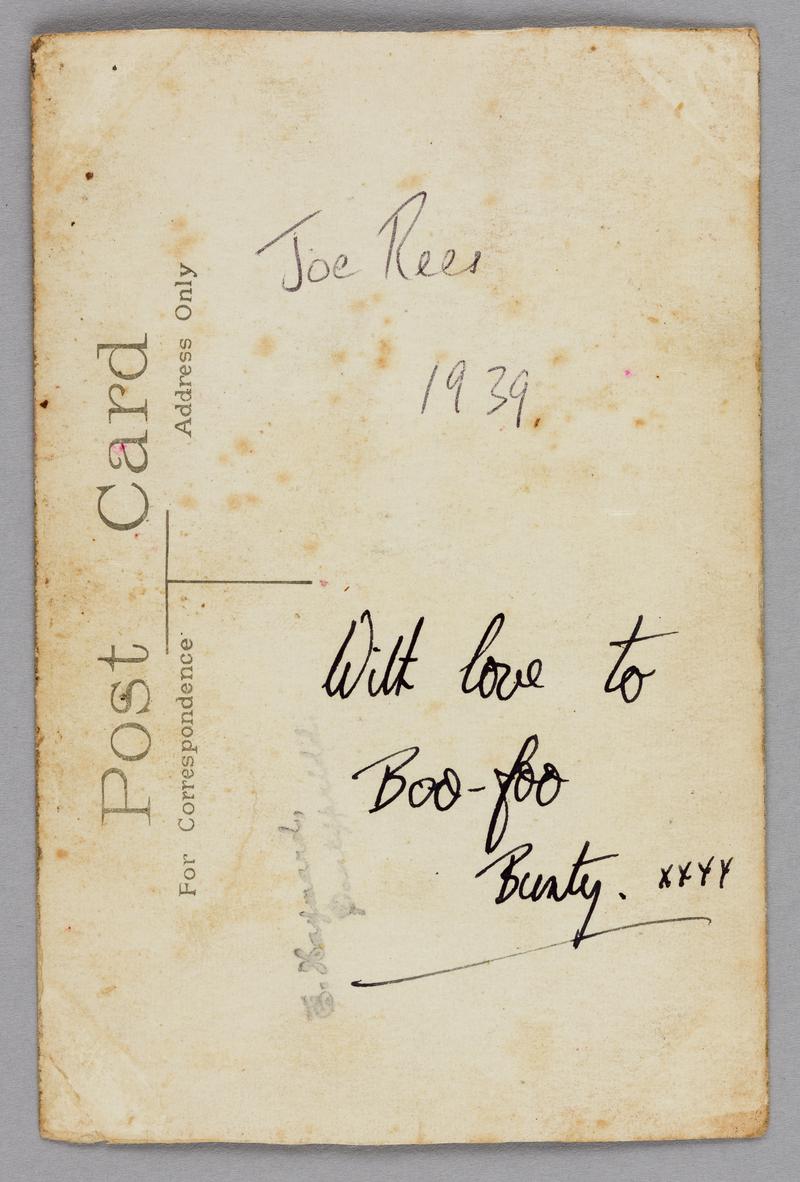 Post Card
For Correspondence
Address Only
Joe Rees
1939
With love to
Boo-foo
Bunty. xxxx
E. Haymard,
Pontypridd.